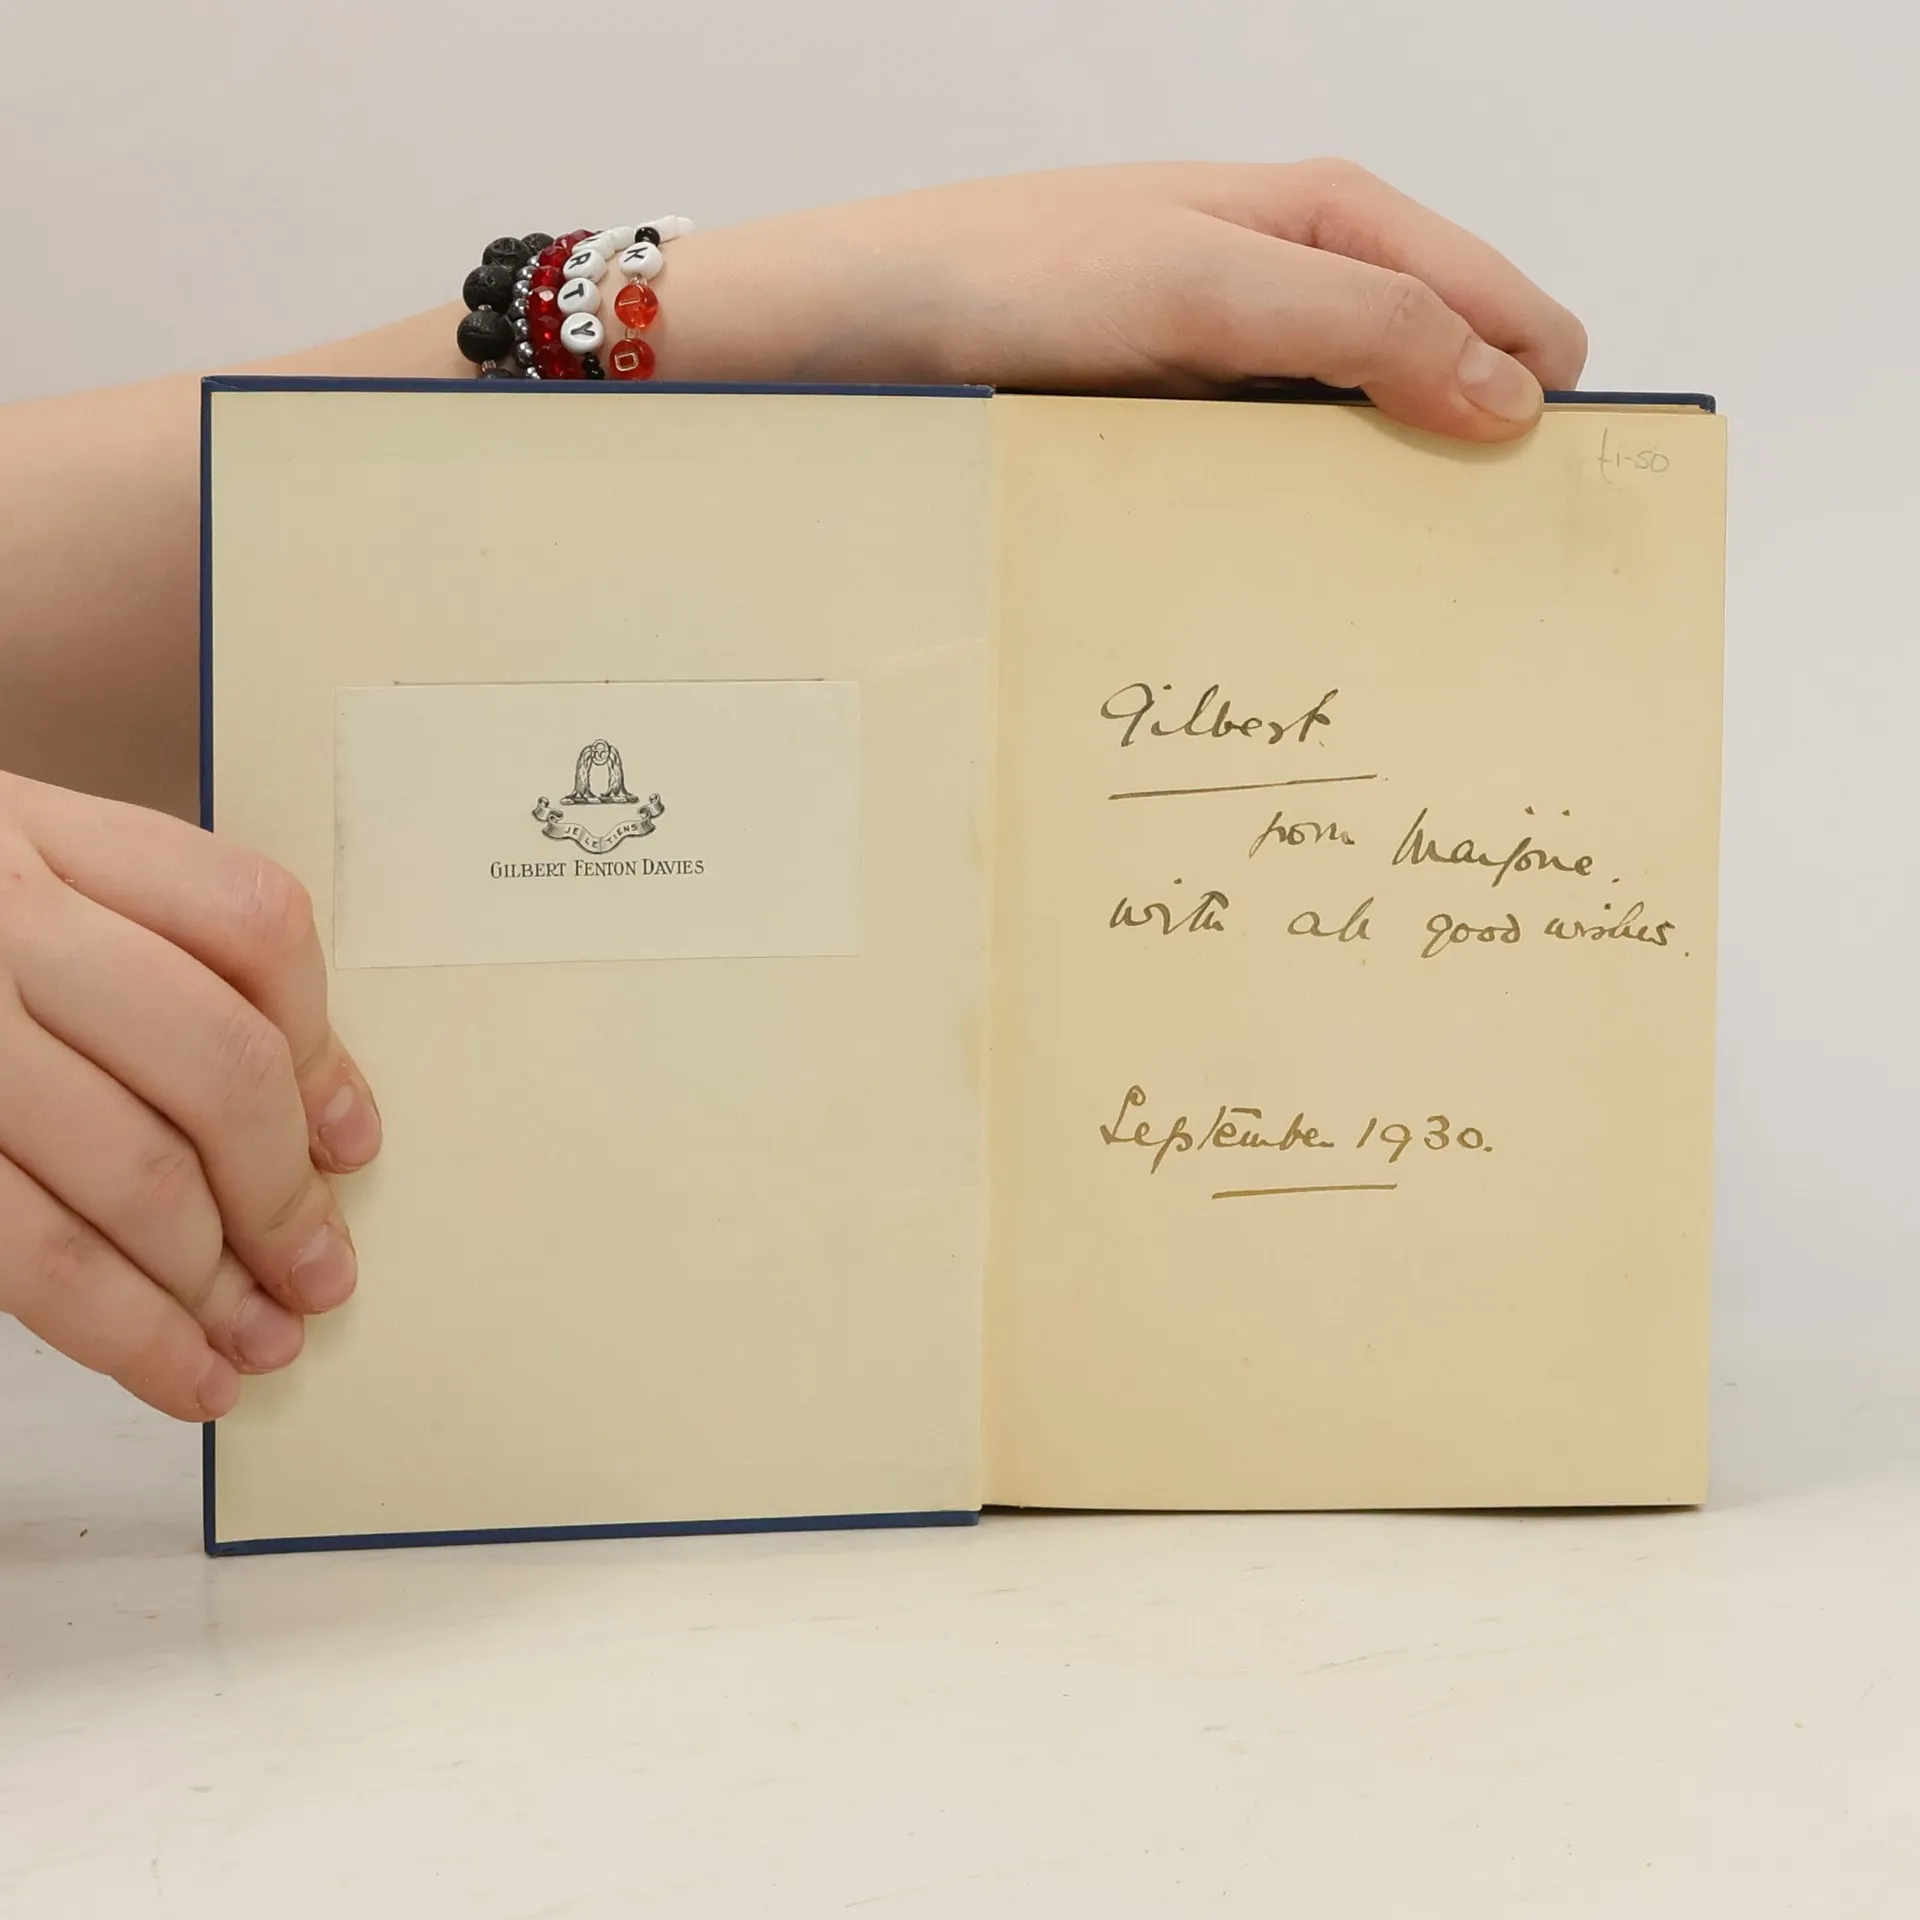 R
T
Y
K
D
£1-50
JE LE TIENS
GILBERT FENTON DAVIES
Gilbert.
from Marjorie.
with all good wishes.
September 1930.